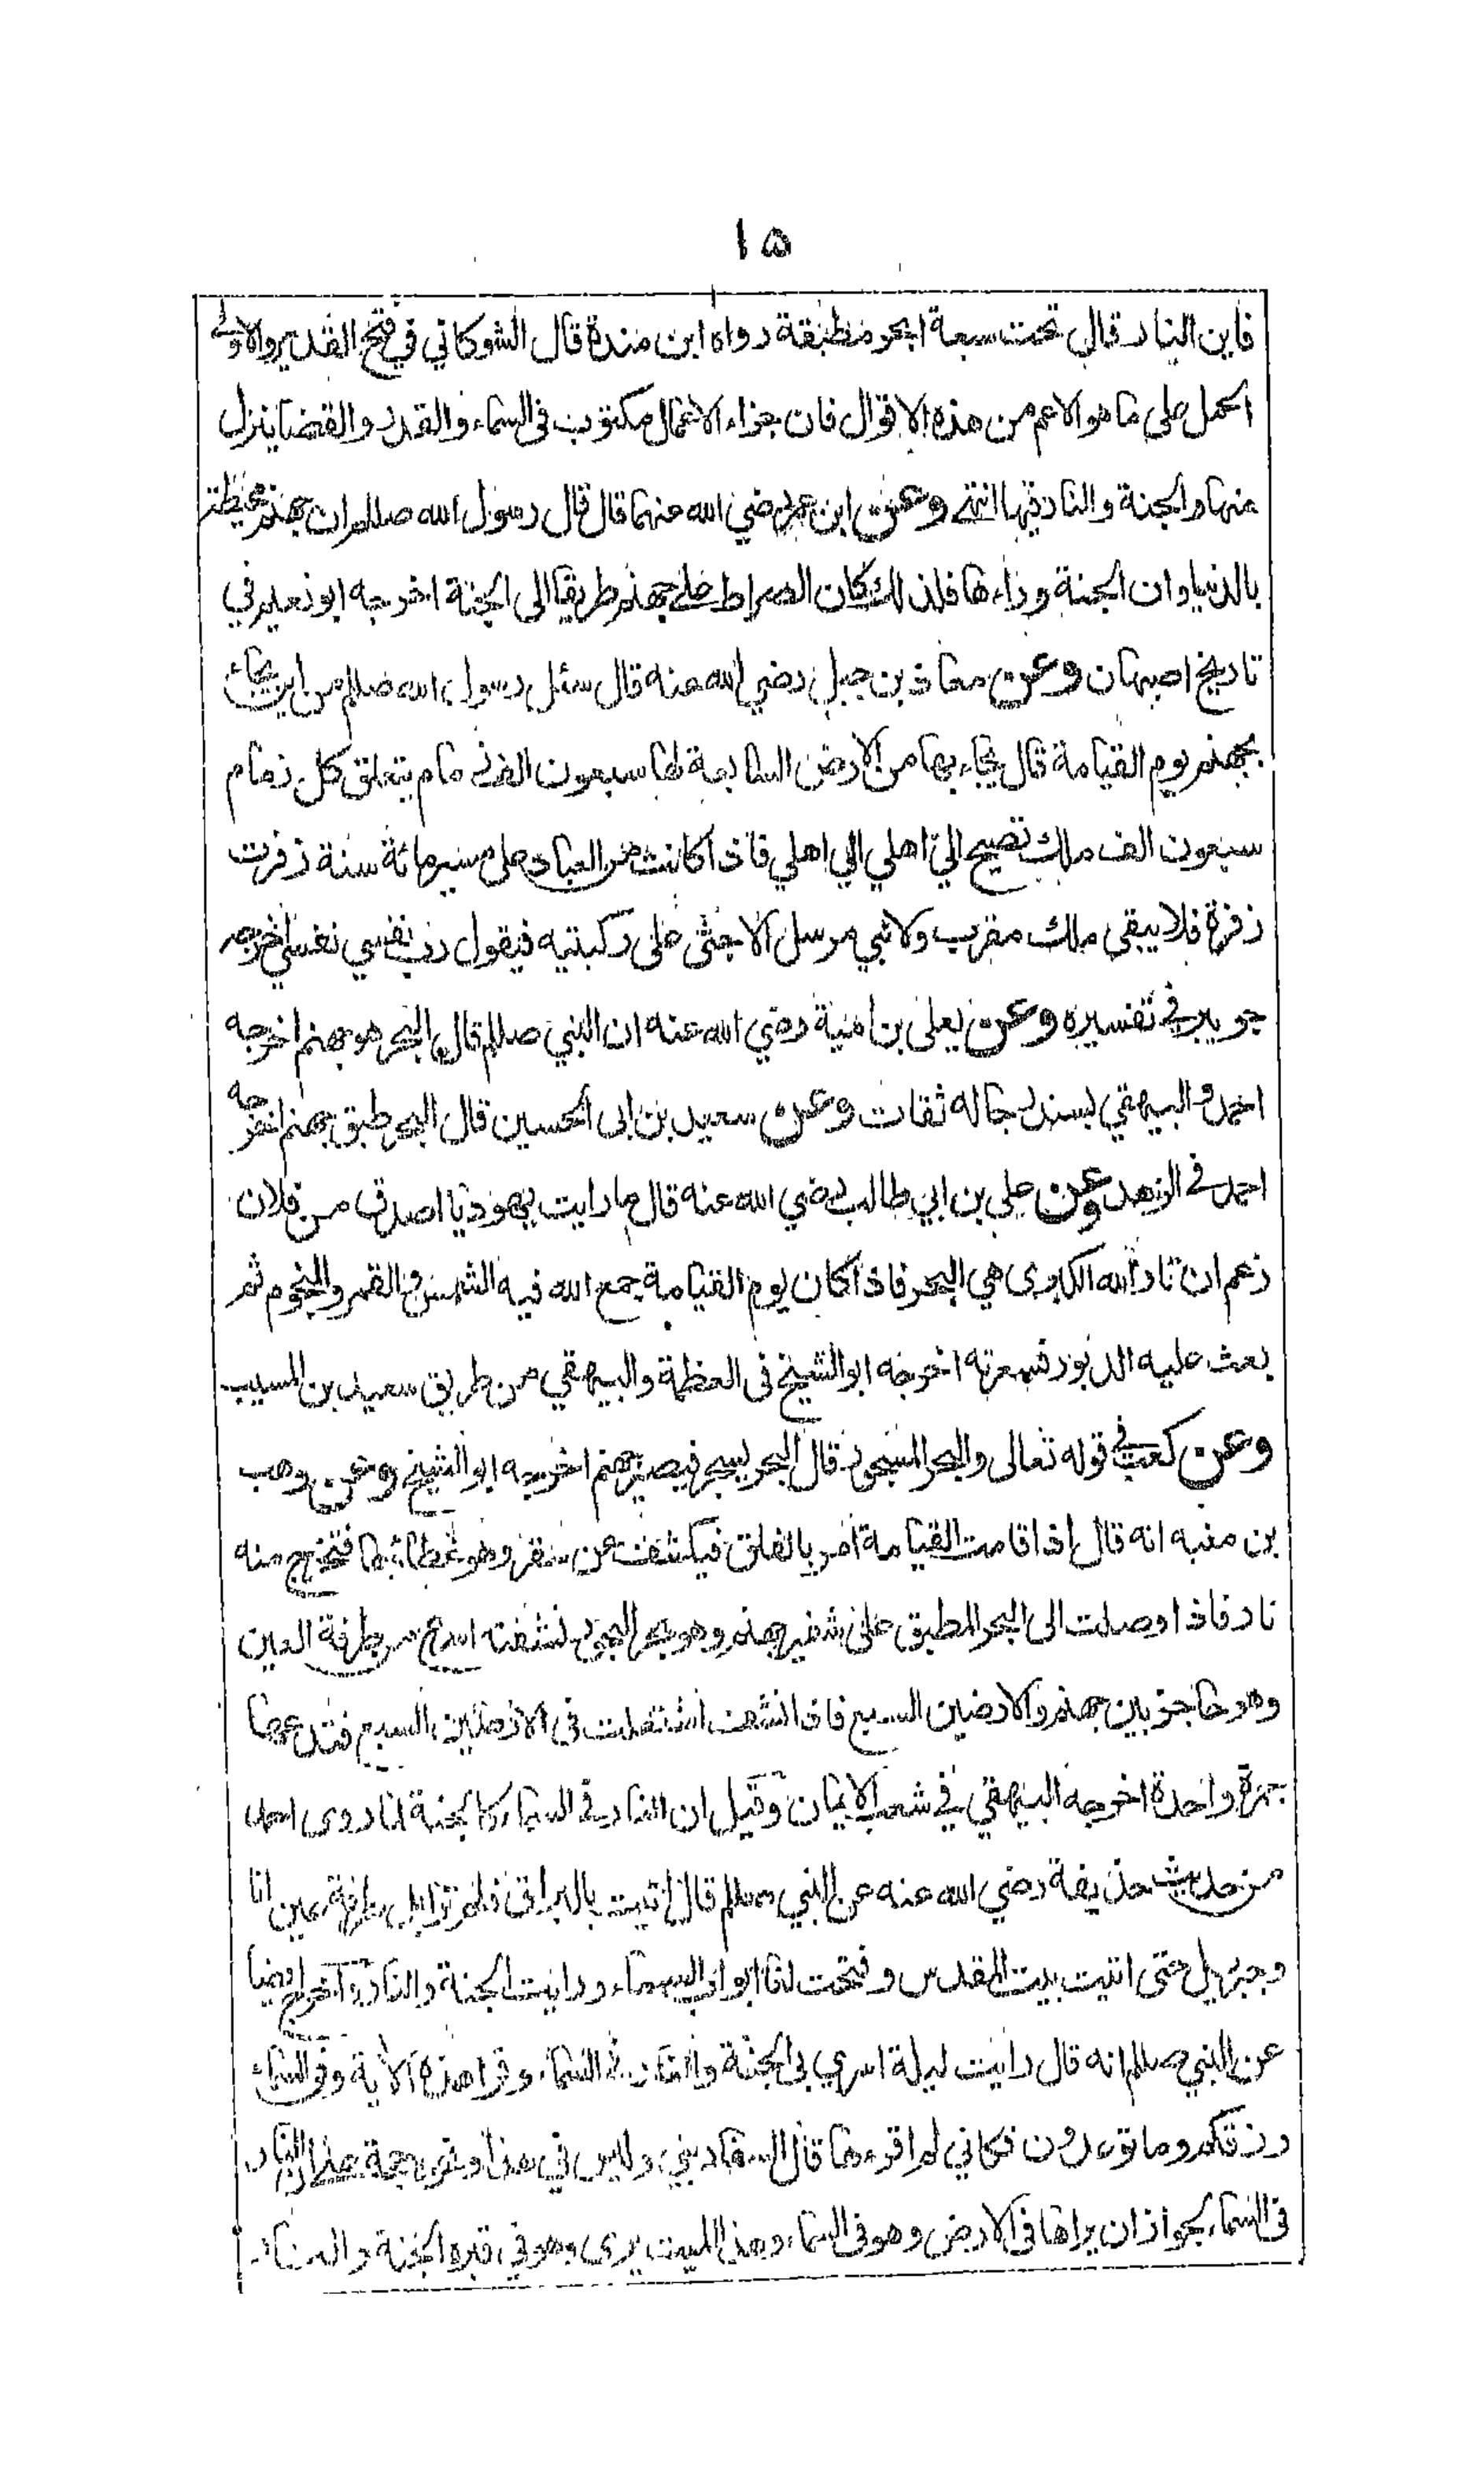 ١٥
فاين النار قال تحت سبعة ابحر منطبقة رواه ابن مندة قال الشوكاني في فتح القدير والاولى
الحمل على ما هو الاعم من هذه الاقوال فان جزاء الاعمال مكتوب فى السماء والقدر والقضا ينزل
منها والجنة والنار فيها انتهى وعن ابن عمر رضي الله عنهما قال قال رسول الله صللم ان جهنم محيطة
بالدنيا وان الجنة وراءها فلذلك كان الصراط على جهنم طريقا الى الجنة اخرجه ابو نعيم في
تاريخ اصبهان وعن معاذ بن جبل رضي الله عنه قال سئل رسول الله صللم من اين يجاء
بجهنم يوم القيامة قال يجاء بها من الارض السابعة لها سبعون الف زمام يتعلق كل زمام
سبعون الف ملك تصيح الي اهلي الي اهلي فاذا كانت من العباد على مسيرمائة سنة زفرت
زفرة فلا يبقى ملك مقرب ولا نبي مرسل الا جثى على ركبتيه فيقول رب نفسي نفسي اخرجه
جويبر في تفسيره وعن يعلى بن امية رضي الله عنه ان النبي صللم قال البحر هو جهنم اخرجه
احمد والبيهقي بسند رجاله ثقات وعن سعيد بن ابى الحسين قال البحر طبق جهنم اخرجه
احمد في الزهد وعن علي بن ابي طالب رضي الله عنه قال ما رايت يهوديا اصدق من فلان
زعم ان نار الله الكبرى هي البحر فاذا كان يوم القيامة جمع الله فيه الشمس والقمر والنجوم ثم
بعث عليه الدبور فسعرته اخرجه ابو الشيخ فى العظمة والبيهقي من طريق سعيد بن المسيب
وعن كعب في قوله تعالى والبحر المسجور قال البحر يسجر فيصير جهنم اخرجه ابو الشيخ وعن وهب
بن منبه انه قال اذا قامت القيامة امر بالفلق فيكشف عن سقر وهو غطاءها فتخرج منه
نار فاذا وصلت الى البحر المطبق على شفير جهنم وهو بحر البحور نشفته اسرع من طرفة العين
وهو حاجز بين جهنم والارضين السبع فاذا نشفت اشتعلت فى الارضين السبع فتدعها
جمرة واحدة اخرجه البيهقي في شعب الايمان وقيل ان النار في السماء كالجنة لما روى احمد
من حديث حذيفة رضي الله عنه عن النبي صللم قال اتيت بالبراق فلم نزايل طرفة عين انا
وجبريل حتى اتيت بيت المقدس وفتحت لنا ابواب السماء ورايت الجنة والنار واخرج ايضا
عن النبي صللم انه قال رايت ليلة اسري بى الجنة والنار في السماء وقرا هذه الآية وفي السماء
رزقكم وما توعدون فكاني لم اقرءها قال السفاريني وليس في هذا ونحوه حجة على ان النار
فى السماء لجواز ان يراها فى الارض وهو فى السماء وهذا الميت يرى وهو في قبره الجنة والنار